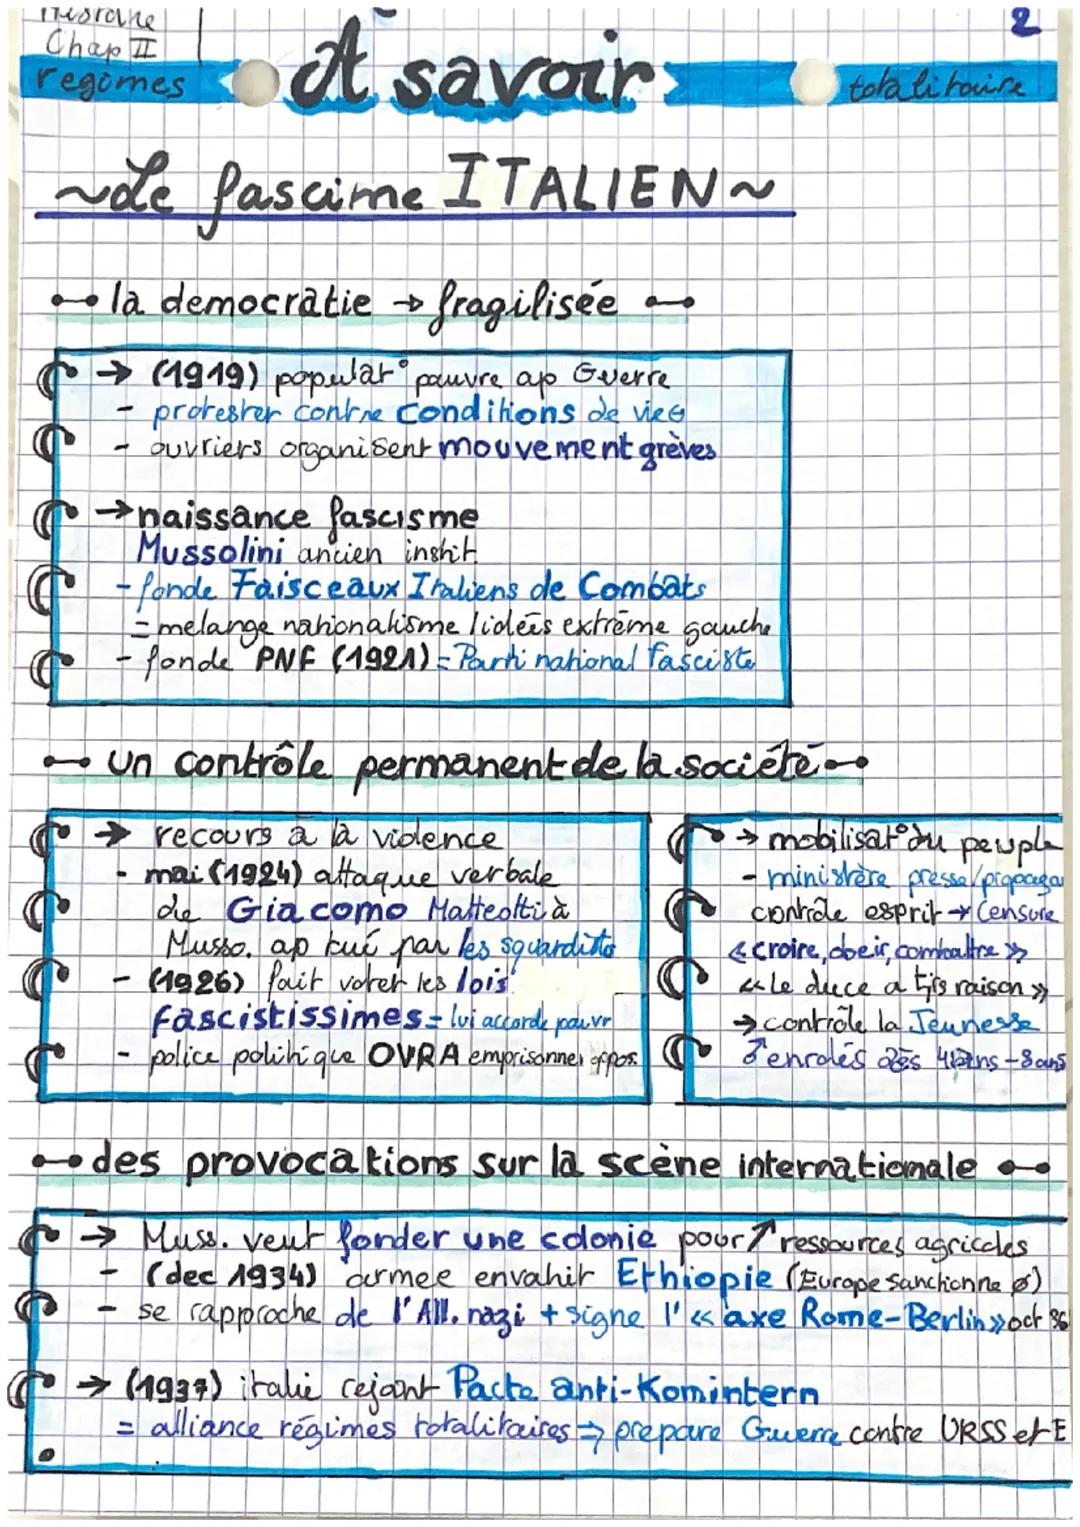 Histoire
2
Chap II
régimes
A savoir
totalitaire
~Le fascime ITALIEN~
la democratie → fragilisée
→ (1919) populat° pauvre ap Guerre
- protester contre conditions de vies
- ouvriers organisent mouvement grèves
→ naissance fascisme
Mussolini ancien instit
- fonde Faisceaux Italiens de Combats
= melange nationalisme / idées extrême gauche
- fonde PNF (1921) = Parti national fasciste
un contrôle permanent de la société
→ recours à la violence
- mai (1924) attaque verbale
de Giacomo Matteotti à
Musso. ap tué par les squardists
- (1926) fait voter les lois
fascistissimes = lui accorde pouvr
- police politique OVRA emprisonner oppos.
→ mobilisat° du peuple
- ministère presse/propaga
contrôle esprit → Censure
« croire, obeir, combattre »
« Le duce a tjs raison »
→ contrôle la Jeunesse
♂ enrolés dès - 8 ans
des provocations sur la scène internationale
→ Muss. veut fonder une colonie pour ↗ ressources agricoles
- (dec 1934) armee envahit Ethiopie (Europe sanctionne ø)
- se rapproche de l'All. nazi + signe l'« axe Rome-Berlin » oct 36
→ (1937) italie rejoint Pacte anti-Komintern
= alliance régimes totalitaires ⇒ prepare Guerre contre URSS et E